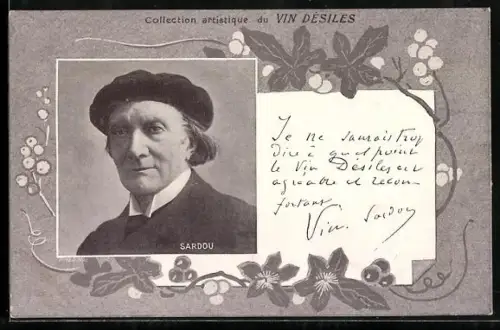 Collection artistique du VIN DÉSILES
SARDOU
Je ne saurais trop
dire à quel point
le Vin Désiles est
agréable et récon-
fortant.
Vict. Sardou